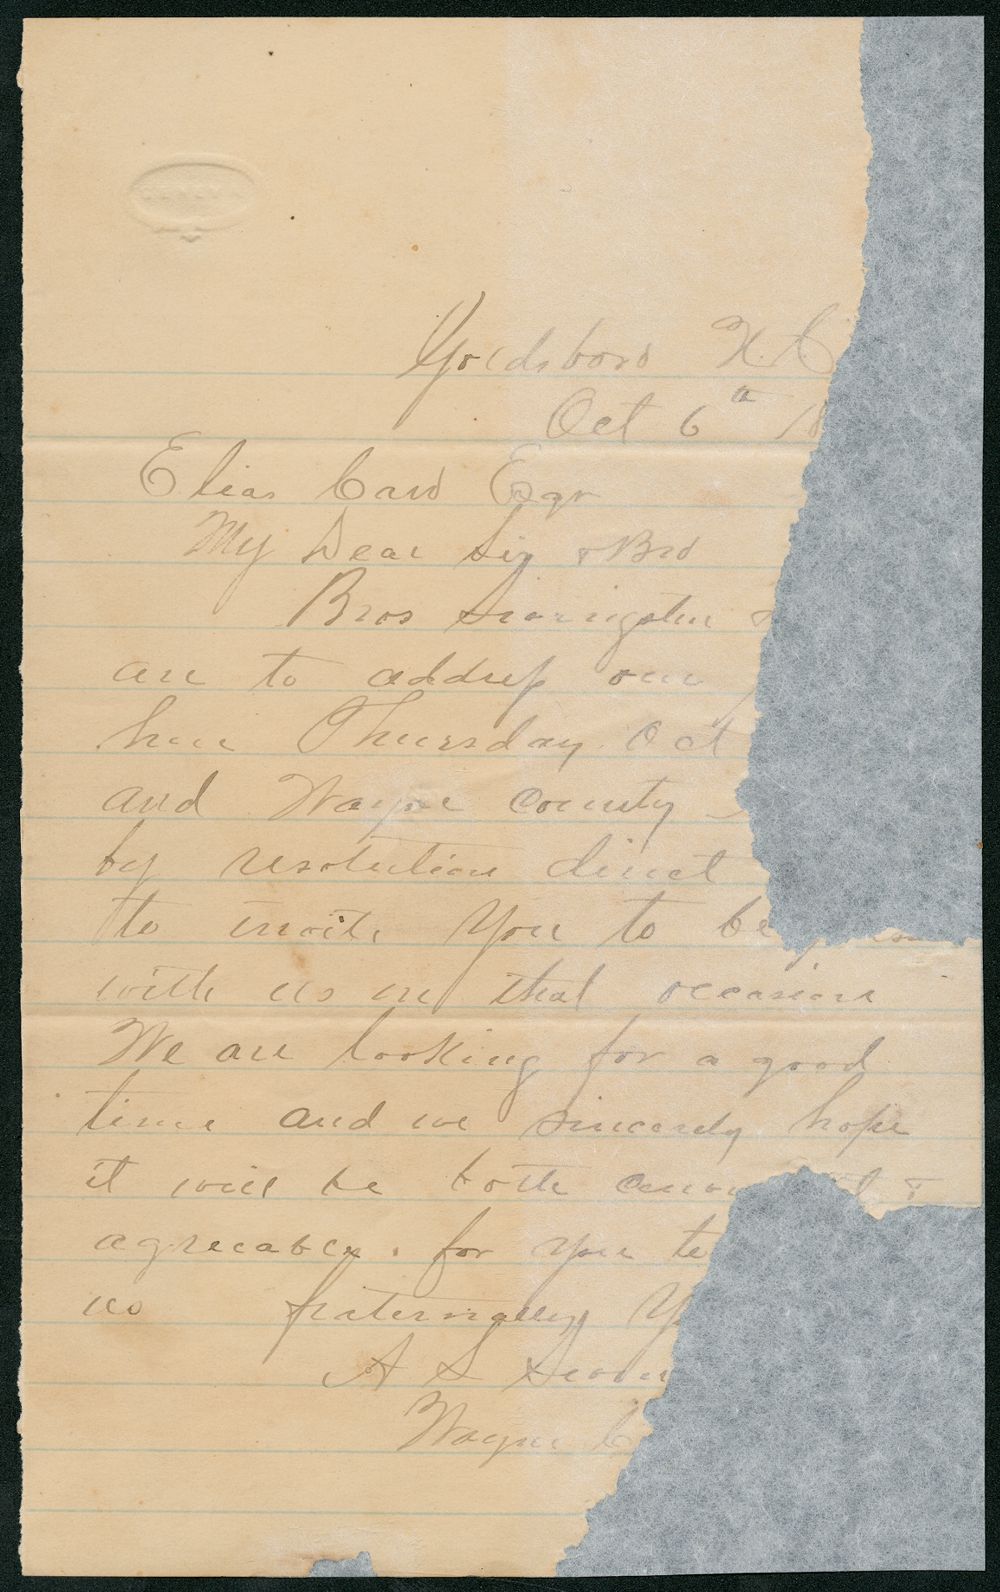 Goldsboro N.C
Oct 6th 18
Elias Carr Esqr
My Dear Sir & Bro
Bros
are to address our
here Thursday Oct
and Wayne County
by resolution direct
to invite you to be
with us on that occasion
We are looking for a good
time and we sincerely hope
it will be both &
agreeable for you to
us fraternally Y
A S
Wayne C